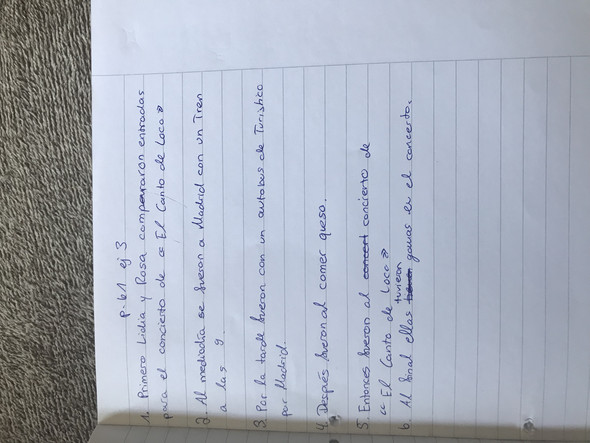 p. 61 ej 3
1. Primero Lidia y Rosa compraron entradas
para el concierto de « El Canto de Loco »
2. Al mediadía se fueron a Madrid con un Tren
a las 9.
3. Por la tarde fueron con un autobus de Turistico
por Madrid.
4. Después fueron al comer queso.
5. Entonces fueron al concert concierto de
« El Canto de Loco »
6. Al final ellas tuvieron ganas en el concerto.